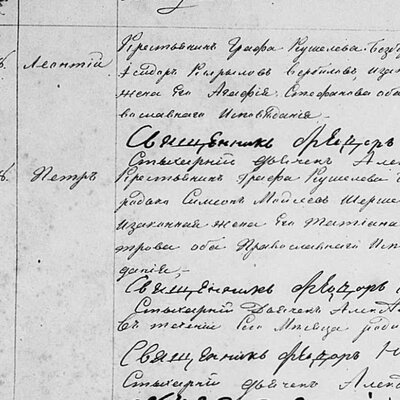 Крестьянинъ Графа Кушелева Безбо
Леонтій
Ѳедоръ Кирыловъ Вербиловъ изак
жена его Агафія Стефанова оба
вославнаго Исповѣданія
Священникъ Ѳеодоръ
Стихарній дьячекъ Алек
Петръ
Крестьянинъ Графа Кушелева
Симеонъ
изаконная жена его Татіана
трова оба Православнаго Исп
данія
Священникъ Ѳеодоръ
Стихарній Дьячекъ Алекса
въ теченіи сего Мѣсяца роди
Священникъ Ѳеодоръ
Стихарній дьячекъ Алекс